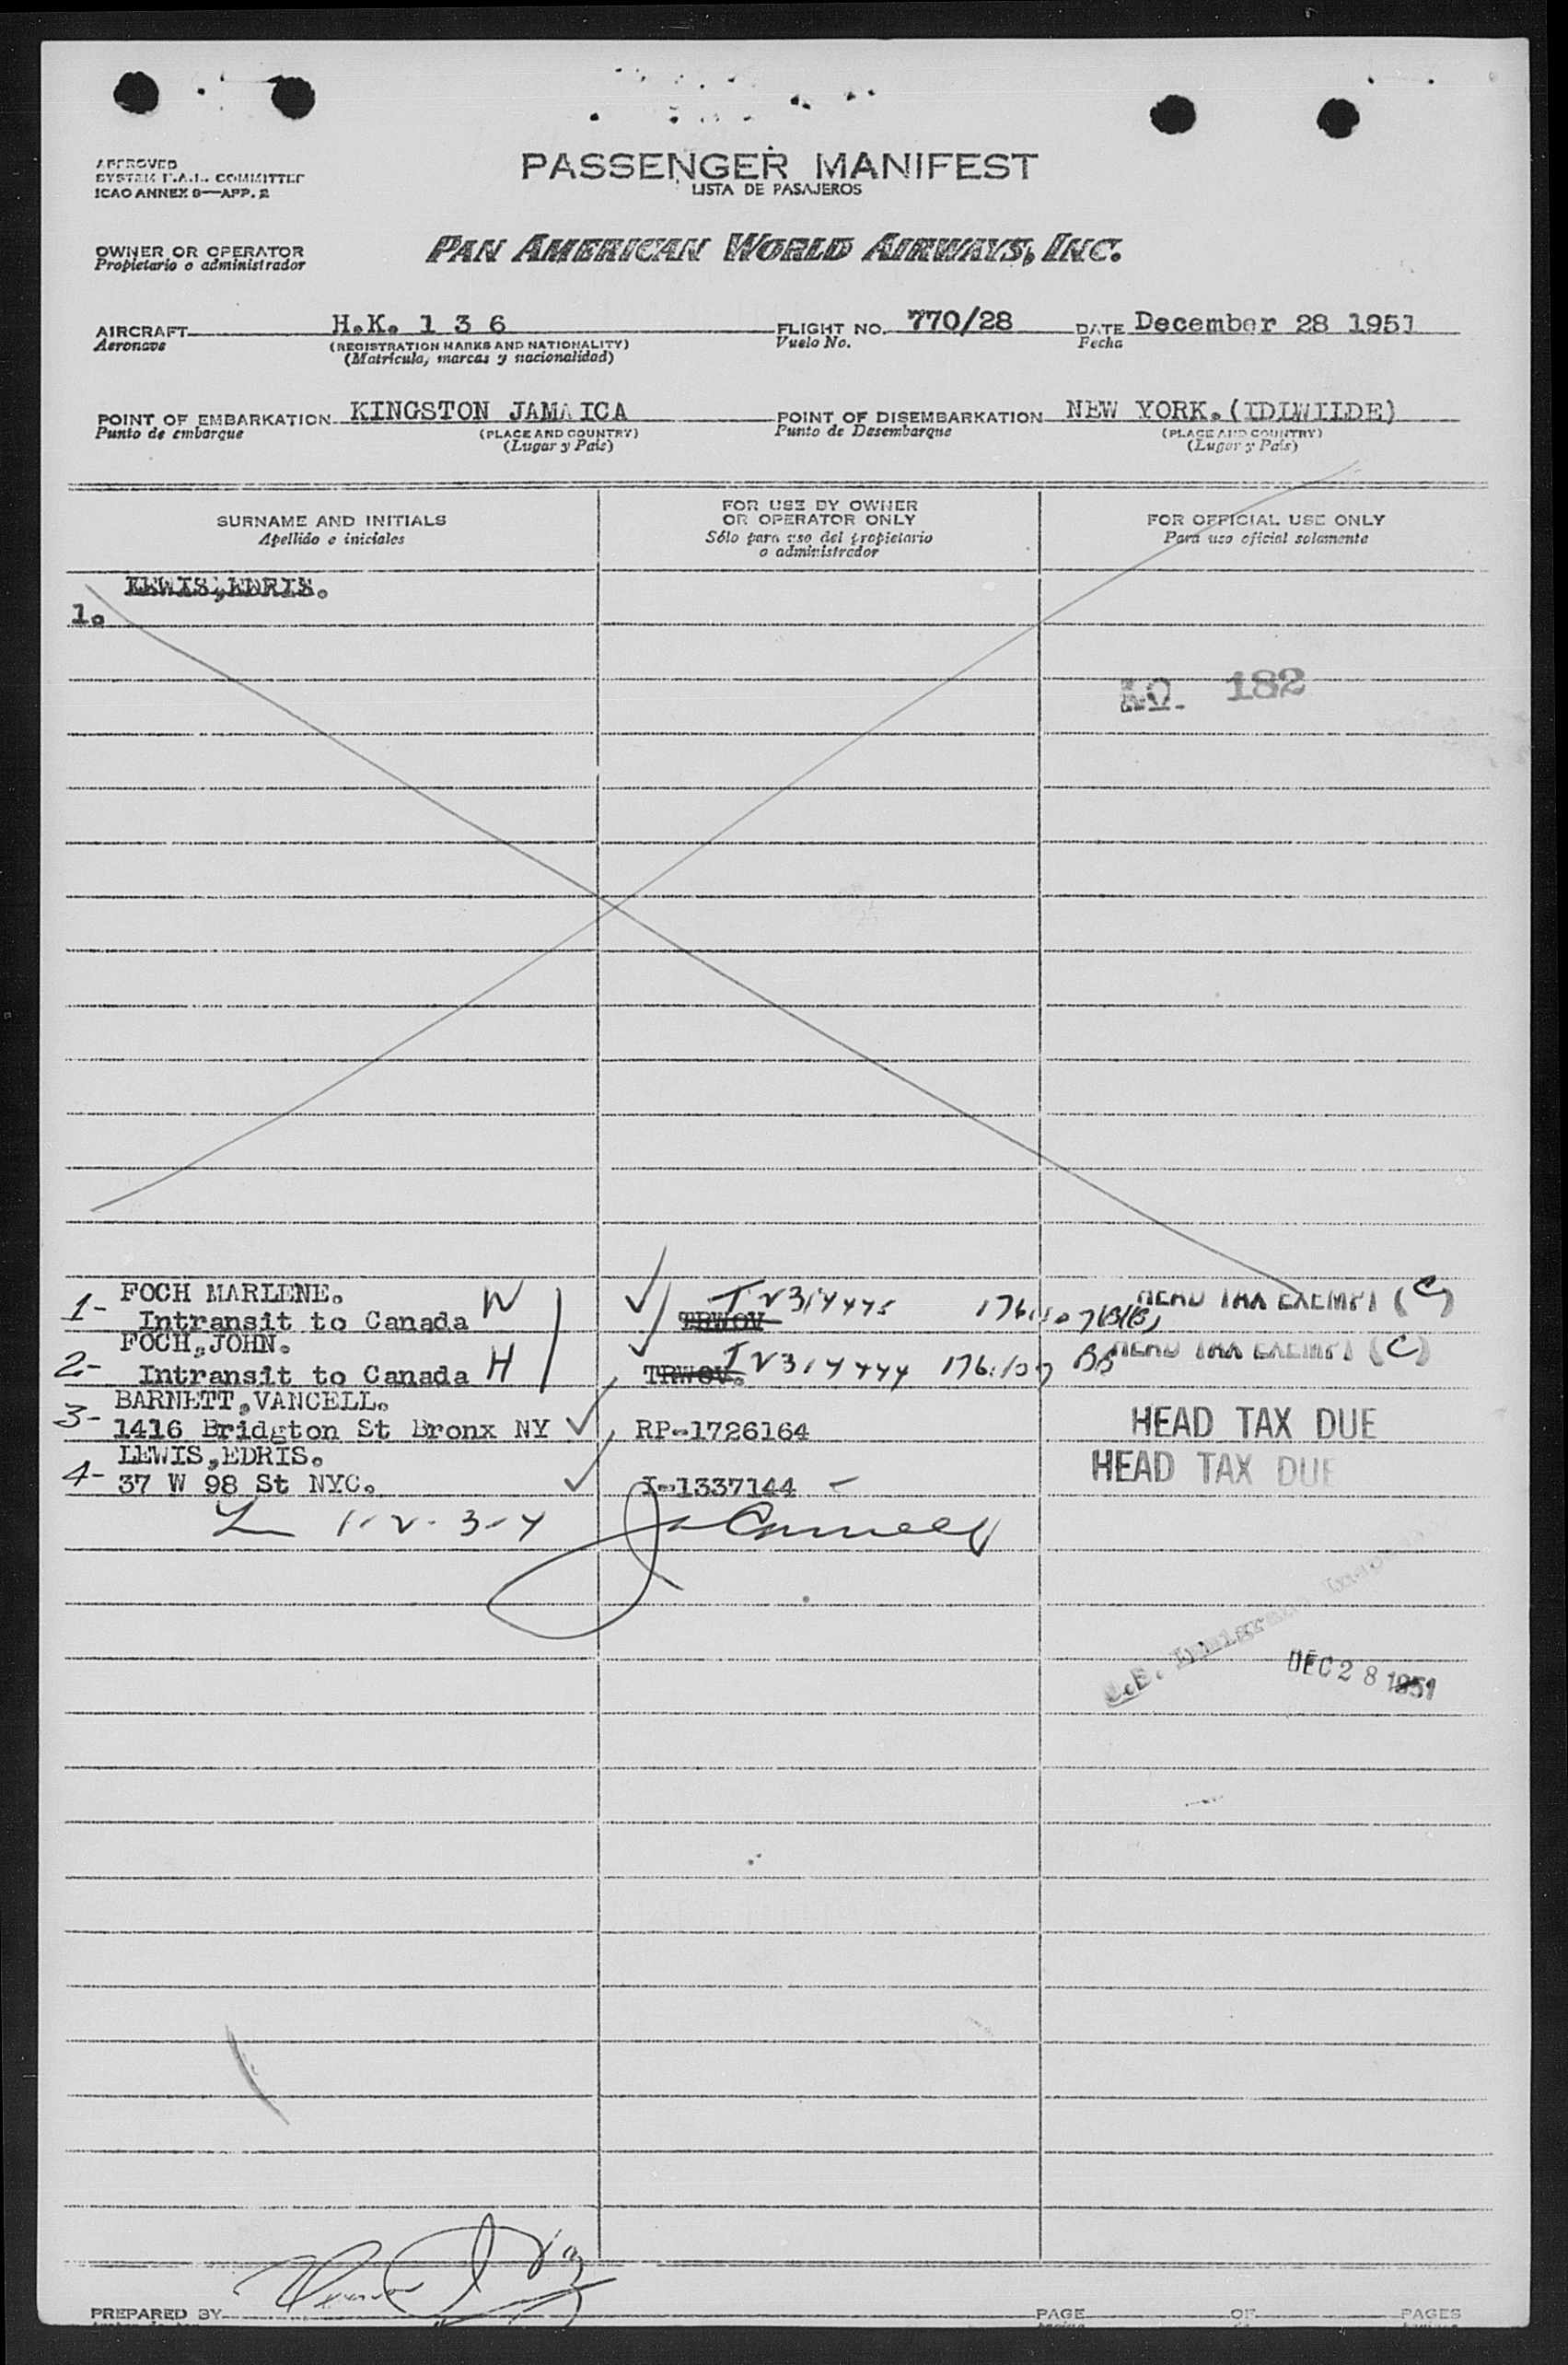 APPROVED
SYSTEM F.A.L. COMMITTEE
ICAO ANNEX 9—APP. 2
PASSENGER MANIFEST
LISTA DE PASAJEROS
OWNER OR OPERATOR
Propietario o administrador
PAN AMERICAN WORLD AIRWAYS, INC.
AIRCRAFT H.K. 1 3 6 FLIGHT NO. 770/28 DATE December 28 1951
Aeronave (REGISTRATION MARKS AND NATIONALITY) Vuelo No. Fecha
(Matrícula, marcas y nacionalidad)
POINT OF EMBARKATION KINGSTON JAMAICA POINT OF DISEMBARKATION NEW YORK.(IDLWILDE)
Punto de embarque (PLACE AND COUNTRY) Punto de Desembarque (PLACE AND COUNTRY)
(Lugar y País) (Lugar y País)
SURNAME AND INITIALS FOR USE BY OWNER OR OPERATOR ONLY FOR OFFICIAL USE ONLY
Apellido e iniciales Sólo para uso del propietario o administrador Para uso oficial solamente
LEWIS,EDRIS.
1.
182
FOCH MARLENE. HEAD TAX EXEMPT (C)
1- Intransit to Canada W TRWOV T 2314445
FOCH,JOHN. HEAD TAX EXEMPT (C)
2- Intransit to Canada H TRWOV. T 2314444 176.107 BB
BARNETT,VANCELL.
3- 1416 Bridgton St Bronx NY RP-1726164 HEAD TAX DUE
LEWIS,EDRIS.
4- 37 W 98 St NYC. I-1337144 HEAD TAX DUE
1-2-3-4
U.S. Immigration
DEC 28 1951
PREPARED BY PAGE OF PAGES